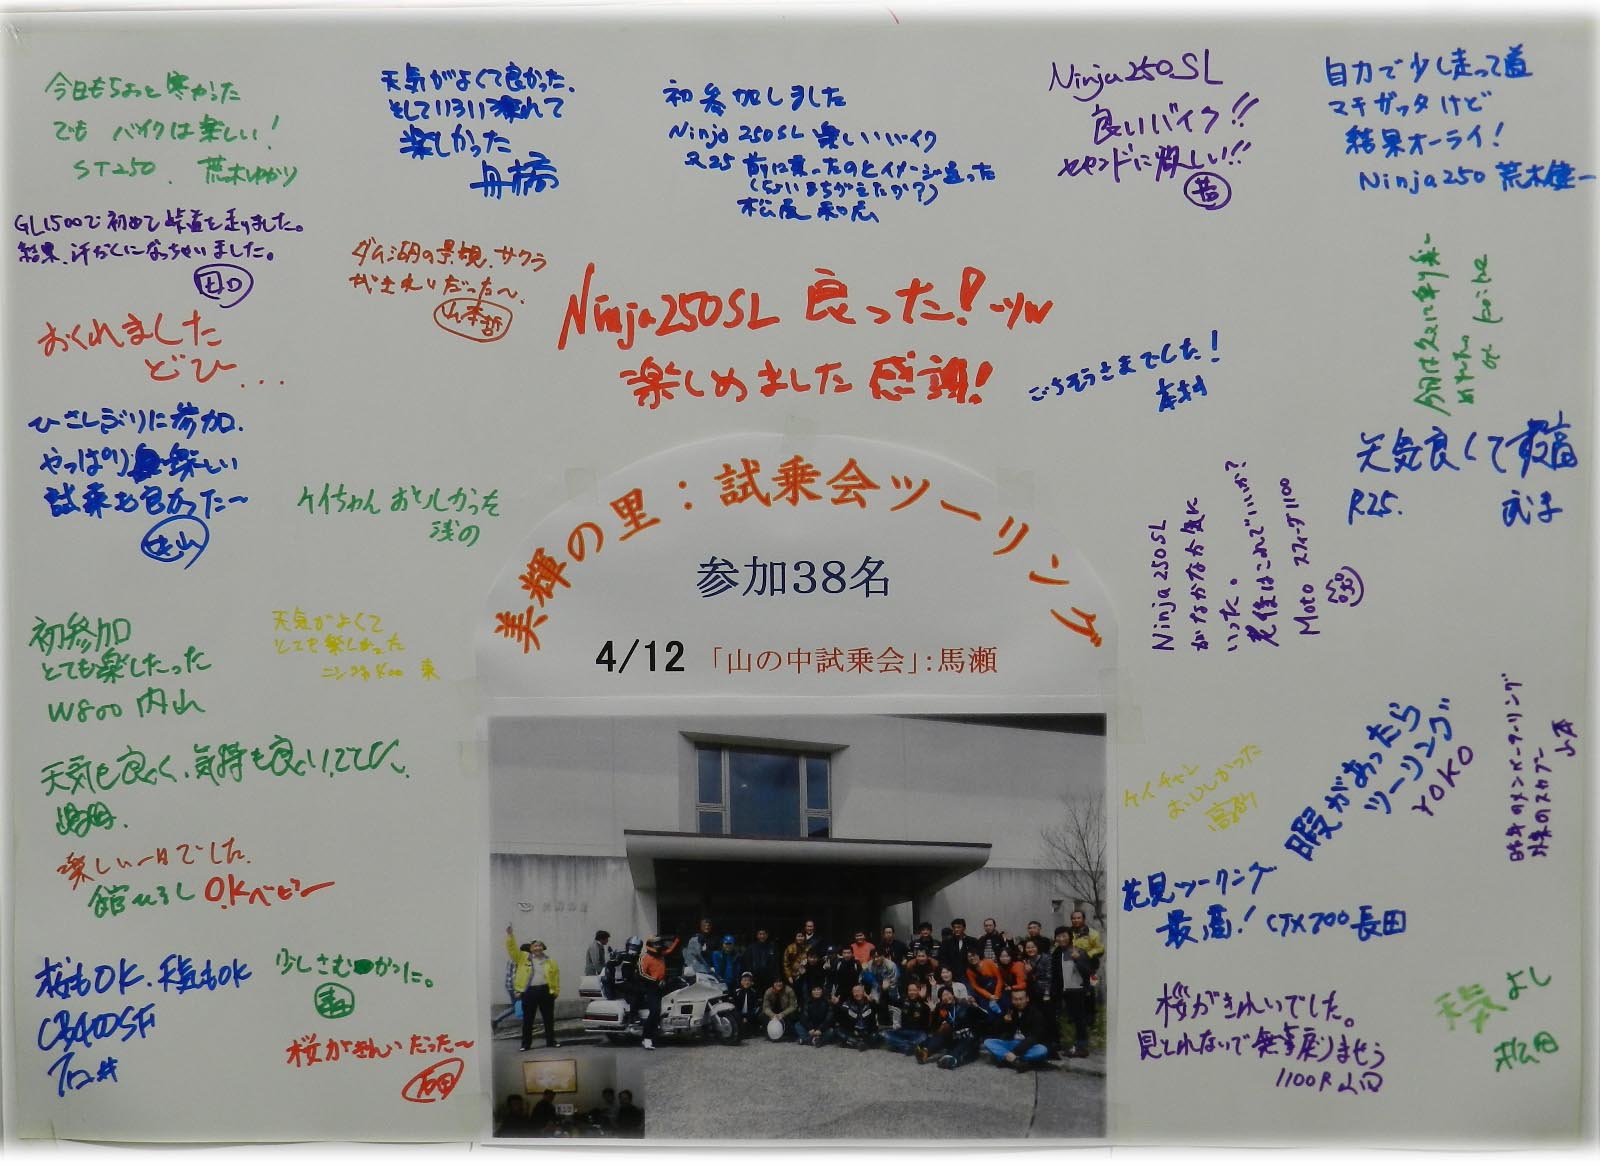 今日もちょっと寒かった
でも バイクは楽しい!
ST250. 荒木ゆかり
天気がよくて良かった.
そしていろいろ乗れて
楽しかった
丹橋
初参加しました
Ninja 250SL 楽しいバイク
R25 前に乗ったのとイメージ違った
松尾
Ninja250SL
良いバイク!!
セカンドに欲しい!!
自力で少し走って道
マチガッタけど
結果オーライ!
Ninja250 荒木健一
GL1500で初めて峠道を走りました。
結果、汗かくになっちゃいました。
ダム湖の景観、サクラ
がきれいだった〜、
山本哲
Ninja250SL 良った!
楽しめました 感謝!
おくれました
どひー...
ごちそうさまでした!
ひさしぶりに参加.
やっぱり楽しい
試乗も良かった〜
ケイちゃん おいしかった
浅の
天気良くて最高
R25.
美輝の里:試乗会ツーリング
参加38名
4/12 「山の中試乗会」:馬瀬
Ninja 250SL
がなかなか気に
いった。
老後はこれでいいか?
Moto
初参加
とても楽したった
W800 内山
天気がよくて
とても楽しかった
天気も良く、気持も良い
楽しい一日でした.
館ひろし
桜もOK、天気もOK
CB400SF
少しさむかった。
桜がきれいだった〜
石田
ケイチャン
おいしかった
暇があったら
ツーリング
YOKO
花見ツーリング
最高! CTX700 長田
桜がきれいでした。
見とれないで無事戻りませう
1100R 山口
天気よし
松田